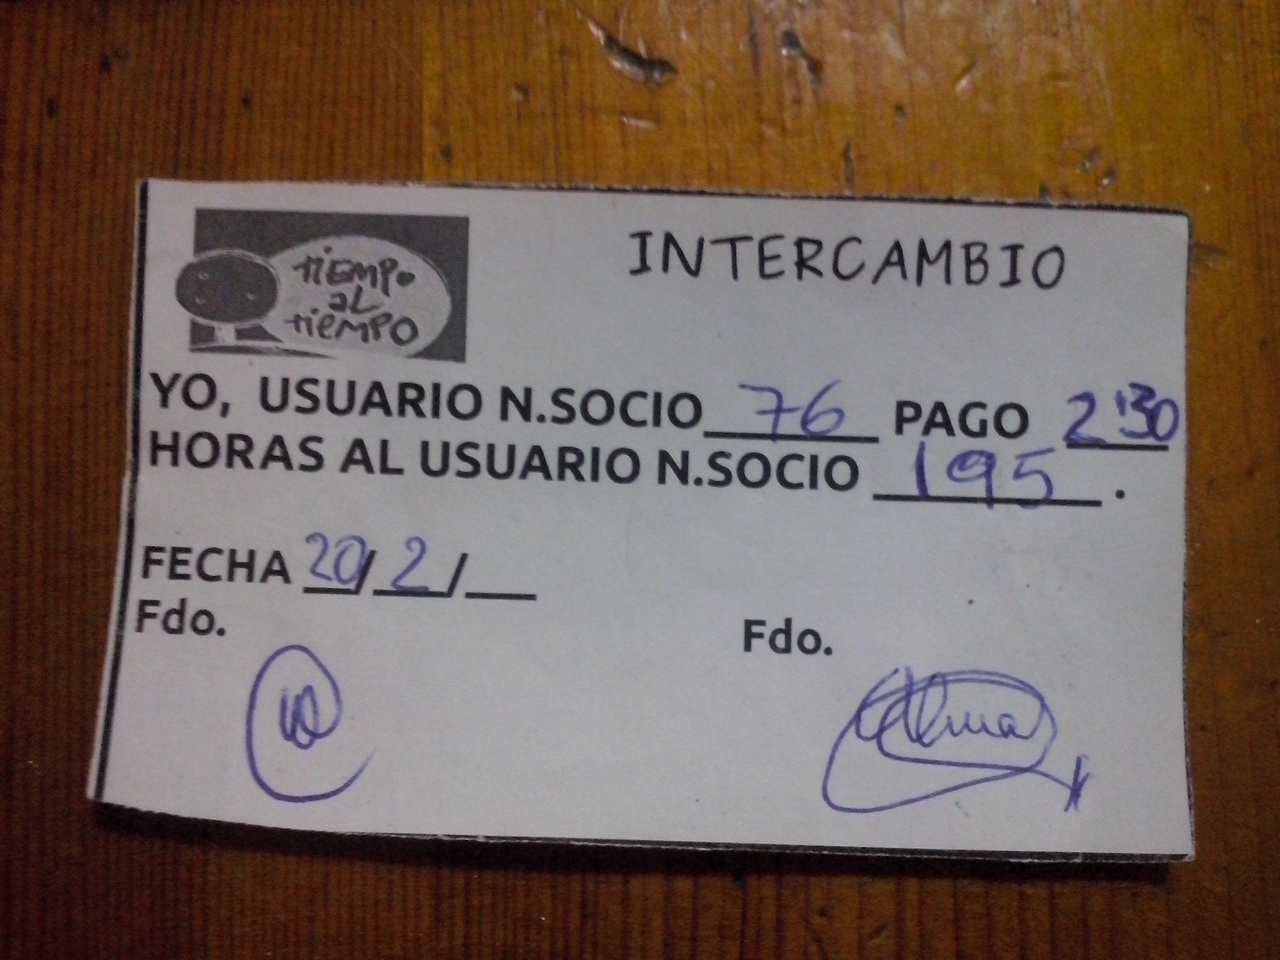 tiempo
al
tiempo
INTERCAMBIO
YO, USUARIO N.SOCIO 76 PAGO 2'30
HORAS AL USUARIO N.SOCIO 195.
FECHA 20/2/__
Fdo.
Fdo.